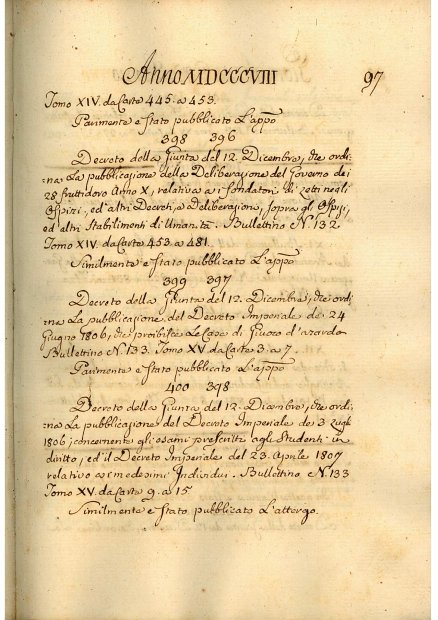 Anno MDCCCVIII 97
Tomo XIV. da Carte 445. a 453.
Parimente è stato pubblicato L'appo
398 396
Decreto della Giunta del 12. Dicembre, che ordi=
na La pubblicazione della Deliberazione del Governo dei
28 fruttidoro Anno X, relativa a i fondatori di Letti negli
Ospizi, ed altri Decreti, e deliberazioni, sopra gl'Ospizi,
ed altri Stabilimenti di Umanità. Bullettino N. 132
Tomo XIV. da Carte 453. a 481.
Similmente è stato pubblicato L'appo
399 397
Decreto della Giunta del 12. Dicembre, che ordi
na La pubblicazione del Decreto Imperiale de 24
Giugno 1806, che proibisce Le Case di Giuoco d'azzardo
Bullettino N. 133. Tomo XV da Carte 3. a 7.
Parimente è stato pubblicato L'appo
400 398
Decreto della Giunta del 12. Dicembre, che ordi
na La pubblicazione del Decreto Imperiale de 3
1806, concernente gli esami prescritti agli Studenti in
diritto, ed il Decreto Imperiale del 23. Aprile 1807
relativo a i medesimi Individui. Bullettino N. 133
Tomo XV. da Carte 9. a 15
Similmente è stato pubblicato L'attergo.